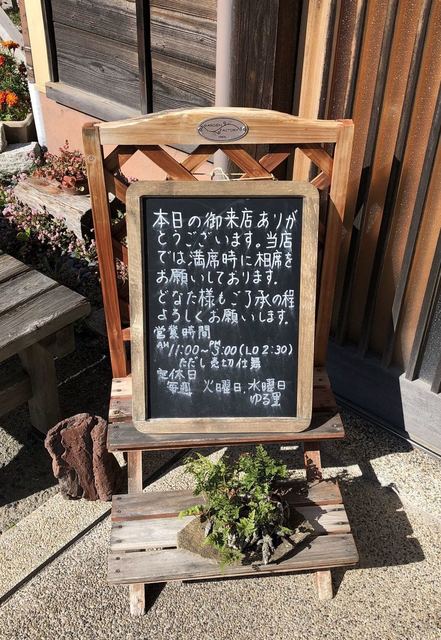 本日の御来店ありが
とうございます。当店
では満席時に相席を
お願いしております.
どなた様もご了承の程
よろしくお願いします.
営業時間
AM11:00〜PM3:00(LO2:30)
ただし売切仕舞
定休日
毎週 火曜日,水曜日
ゆる里